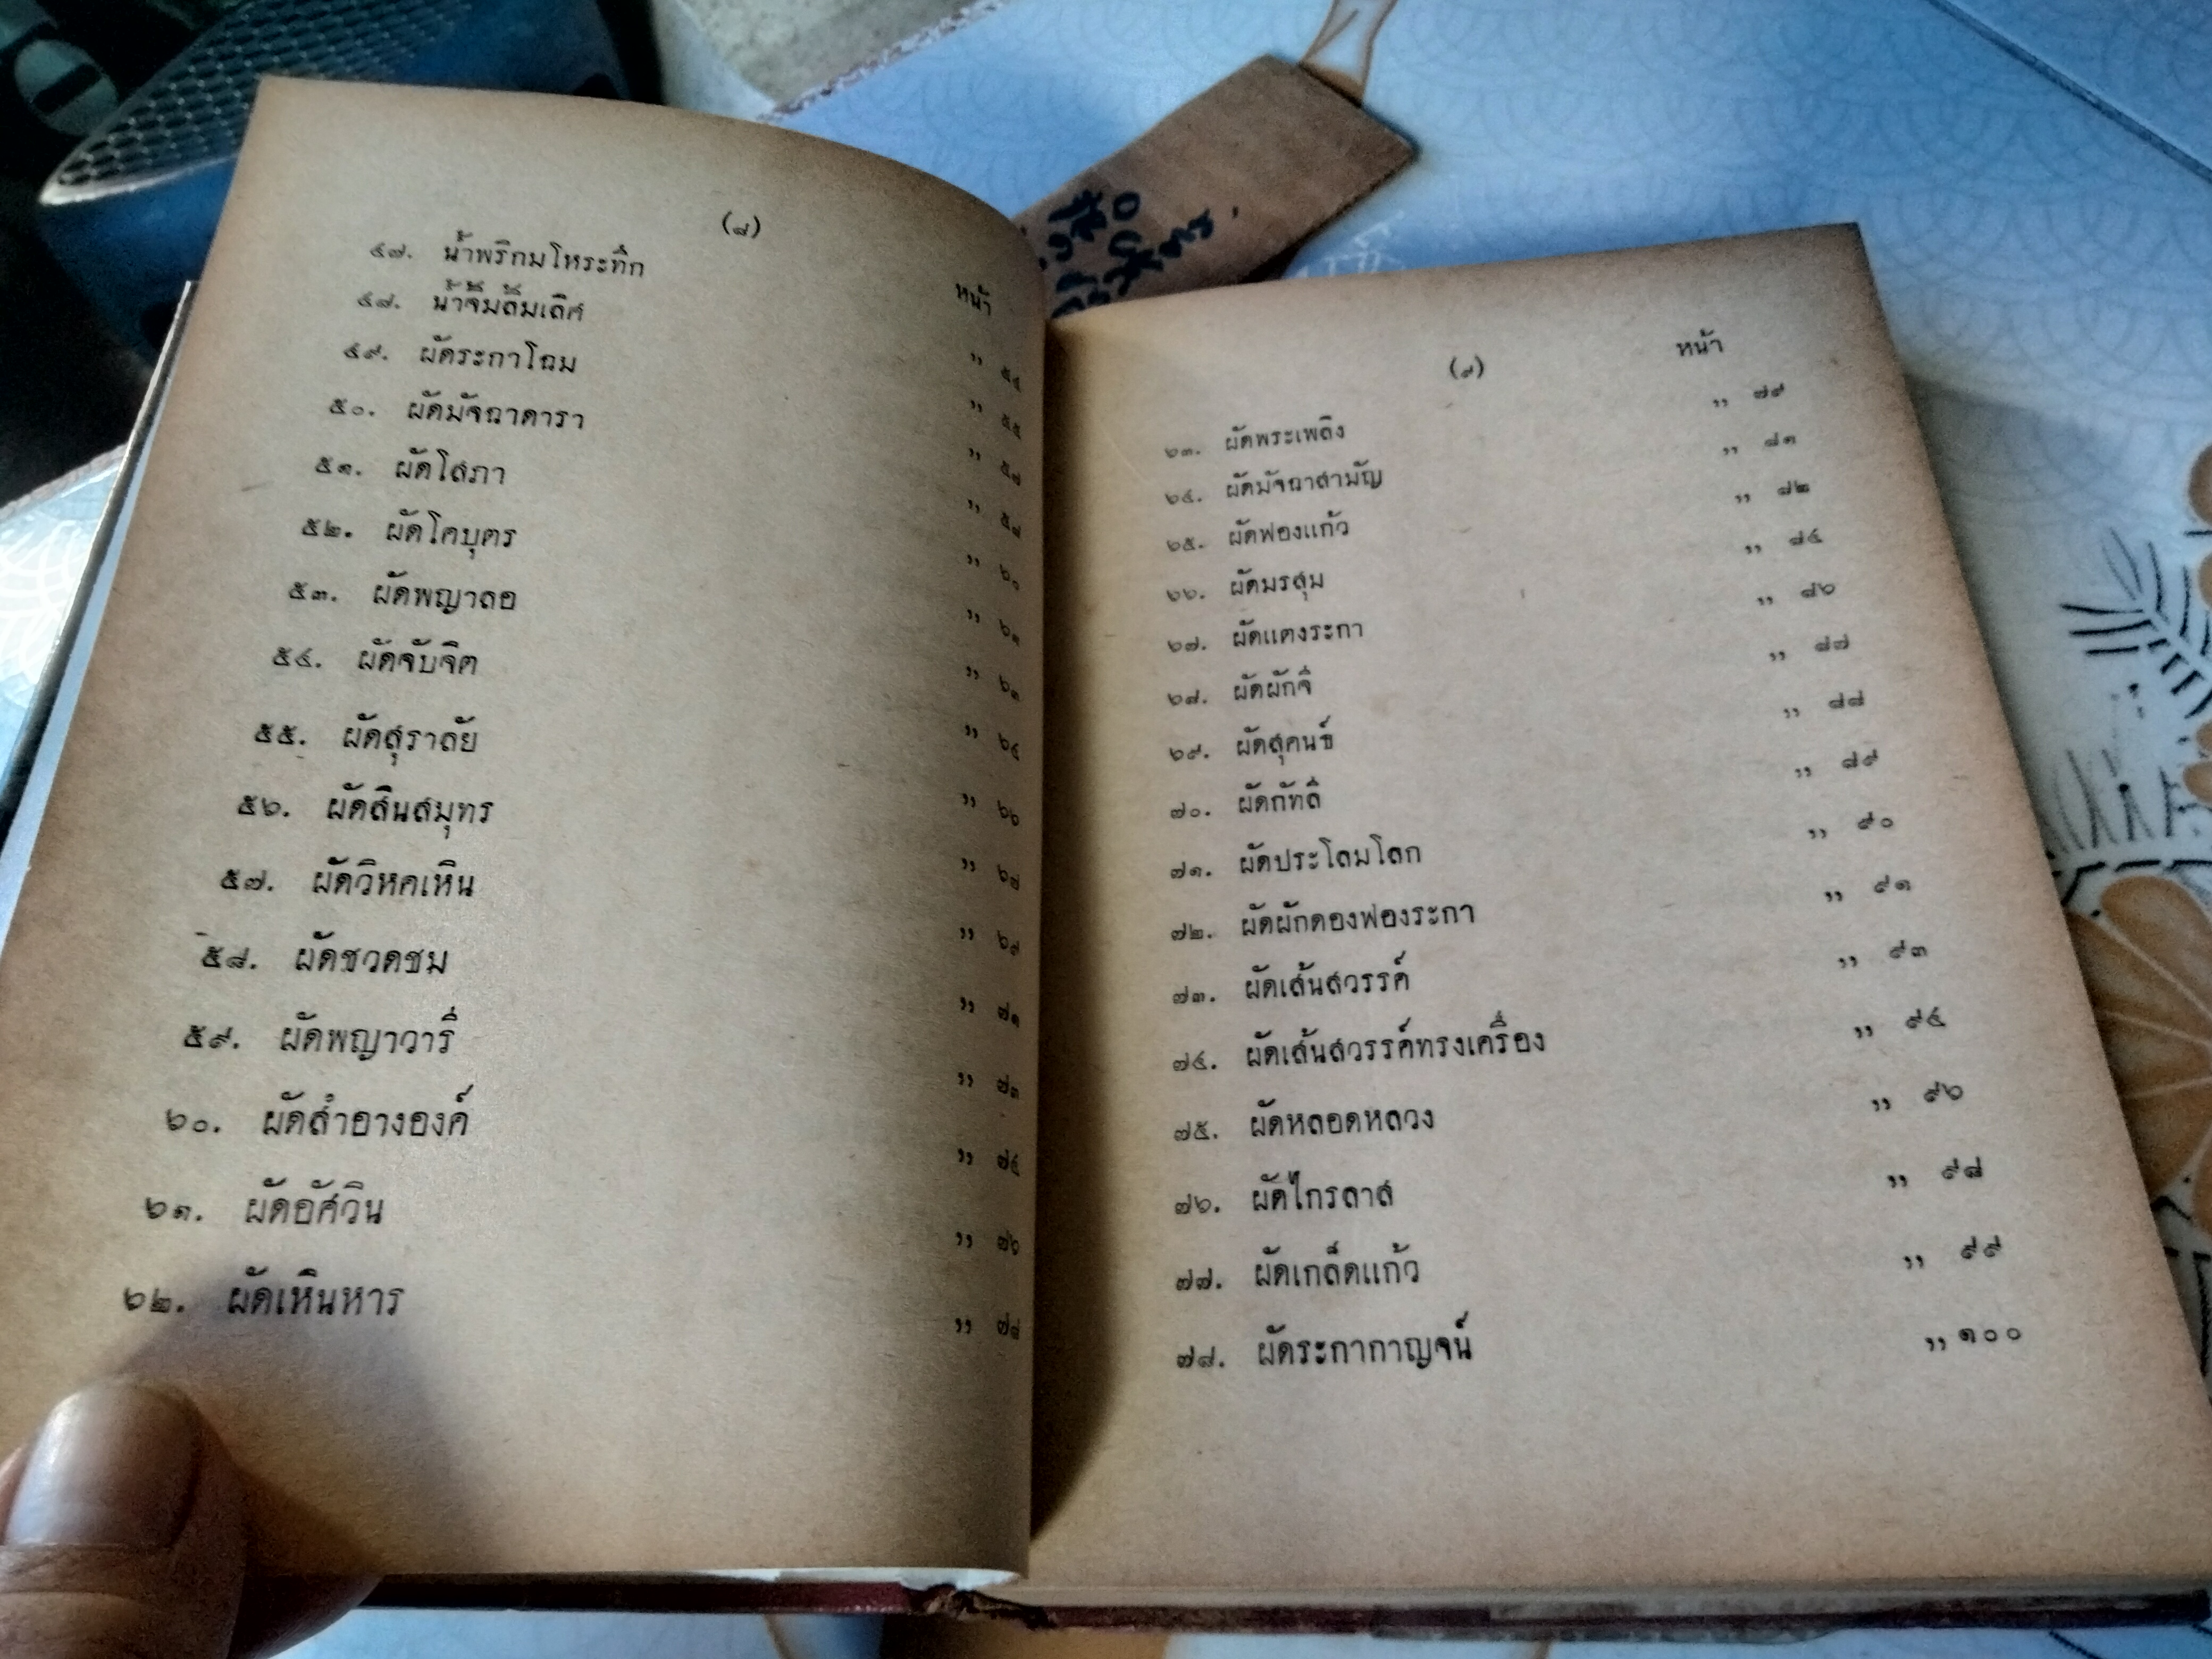 (๘)
หน้า
๔๗. น้ำพริกมโหระทึก ,, ๕๔
๔๘. น้ำจิ้มส้มเลิศ ,, ๕๕
๔๙. ผัดระกาโฉม ,, ๕๗
๕๐. ผัดมัจฉาดารา ,, ๕๘
๕๑. ผัดโสภา ,, ๖๐
๕๒. ผัดโคบุตร ,, ๖๑
๕๓. ผัดพญาลอ ,, ๖๓
๕๔. ผัดจับจิต ,, ๖๔
๕๕. ผัดสุราลัย ,, ๖๖
๕๖. ผัดสินสมุทร ,, ๖๗
๕๗. ผัดวิหคเหิน ,, ๖๙
๕๘. ผัดชวดชม ,, ๗๑
๕๙. ผัดพญาวารี ,, ๗๓
๖๐. ผัดสำอางองค์ ,, ๗๔
๖๑. ผัดอัศวิน ,, ๗๖
๖๒. ผัดเหินหาร ,, ๗๘
(๙)
หน้า
๖๓. ผัดพระเพลิง ,, ๗๙
๖๔. ผัดมัจฉาสามัญ ,, ๘๑
๖๕. ผัดฟองแก้ว ,, ๘๒
๖๖. ผัดมรสุม ,, ๘๔
๖๗. ผัดแตงระกา ,, ๘๖
๖๘. ผัดผักจี ,, ๘๗
๖๙. ผัดสุคนธ์ ,, ๘๘
๗๐. ผัดกัทลี ,, ๘๙
๗๑. ผัดประโลมโลก ,, ๙๐
๗๒. ผัดผักดองฟองระกา ,, ๙๑
๗๓. ผัดเส้นสวรรค์ ,, ๙๓
๗๔. ผัดเส้นสวรรค์ทรงเครื่อง ,, ๙๔
๗๕. ผัดหลอดหลวง ,, ๙๖
๗๖. ผัดไกรลาส ,, ๙๘
๗๗. ผัดเกล็ดแก้ว ,, ๙๙
๗๘. ผัดระกากาญจน์ ,, ๑๐๐